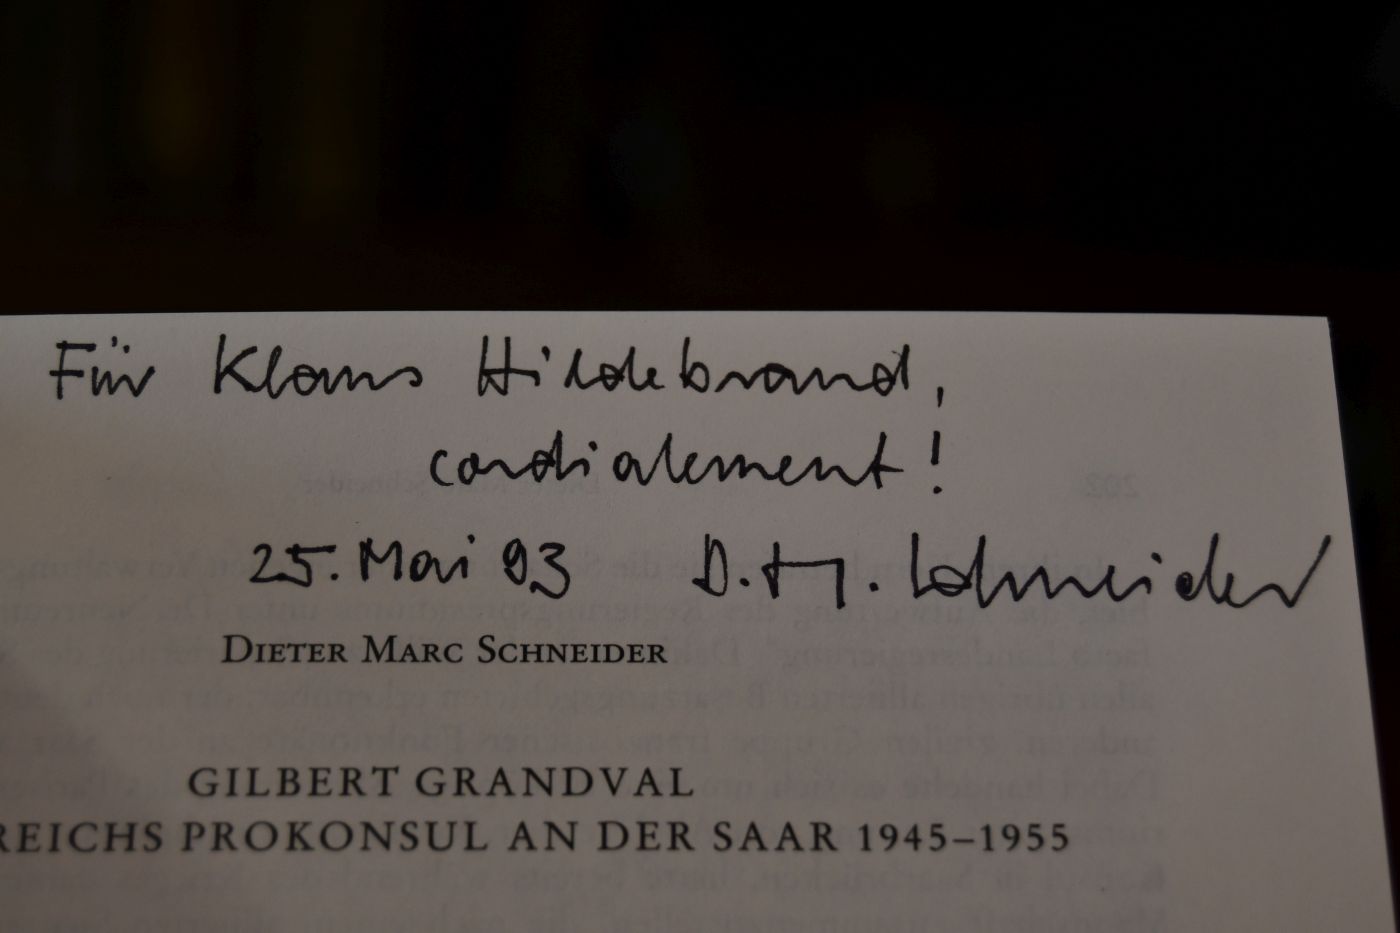 Für Klaus Hildebrand,
cordialement!
25. Mai 93 D. M. Schneider
DIETER MARC SCHNEIDER
GILBERT GRANDVAL
REICHS PROKONSUL AN DER SAAR 1945–1955